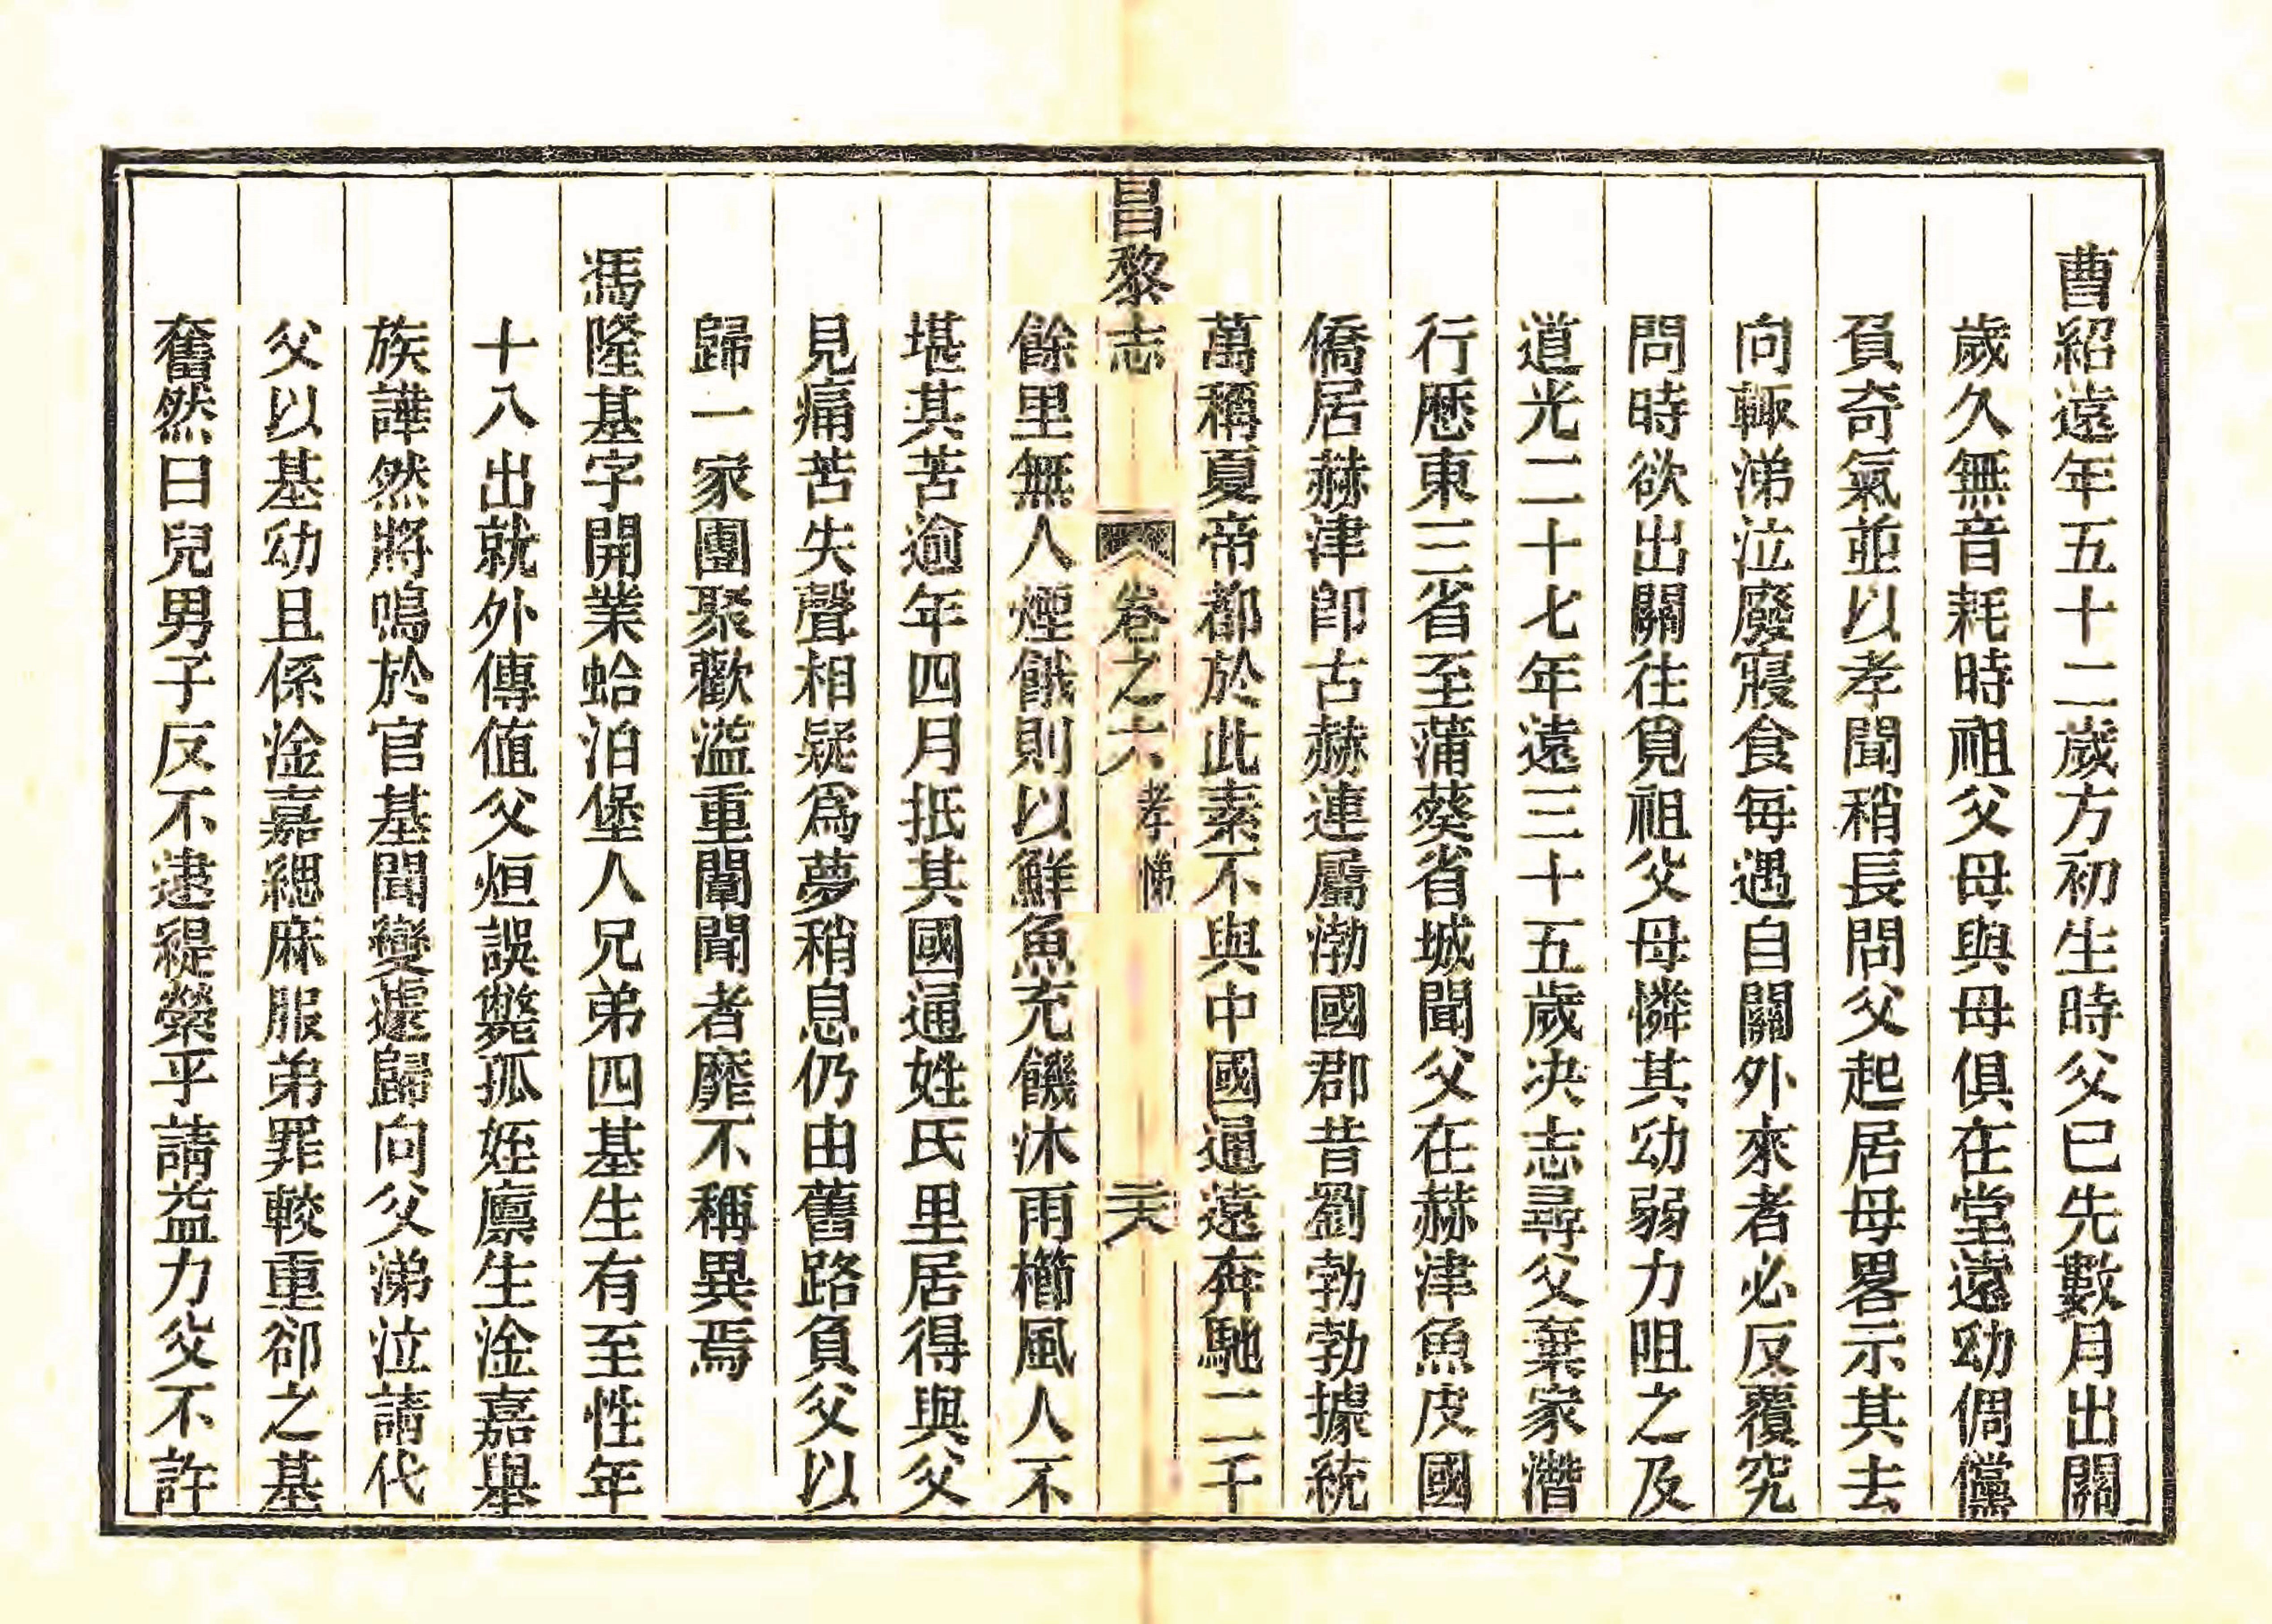 曹紹遠年五十二歲方初生時父已先數月出關
歲久無音耗時祖父母與母俱在堂遠幼倜儻
負奇氣並以孝聞稍長問父起居母畧示其去
向輙涕泣廢寢食每遇自關外來者必反覆究
問時欲出關往覓祖父母憐其幼弱力阻之及
道光二十七年遠三十五歲决志尋父棄家潛
行歷東三省至蒲葵省城聞父在赫津魚皮國
僑居赫津卽古赫連屬渤國郡昔劉勃勃據統
萬稱夏帝都於此素不與中國通遠奔馳二千
昌黎志 卷之六 孝悌 二六
餘里無人煙餓則以鮮魚充饑沐雨櫛風人不
堪其苦逾年四月抵其國通姓氏里居得與父
見痛苦失聲相疑爲夢稍息仍由舊路負父以
歸一家團聚歡溢重闈聞者靡不稱異焉
馮隆基字開業蛤泊堡人兄弟四基生有至性年
十八出就外傳值父烜誤斃孤姪廪生淦嘉舉
族譁然將鳴於官基聞變遽歸向父涕泣請代
父以基幼且係淦嘉緦麻服弟罪較重卻之基
奮然曰兒男子反不逮緹縈乎請益力父不許